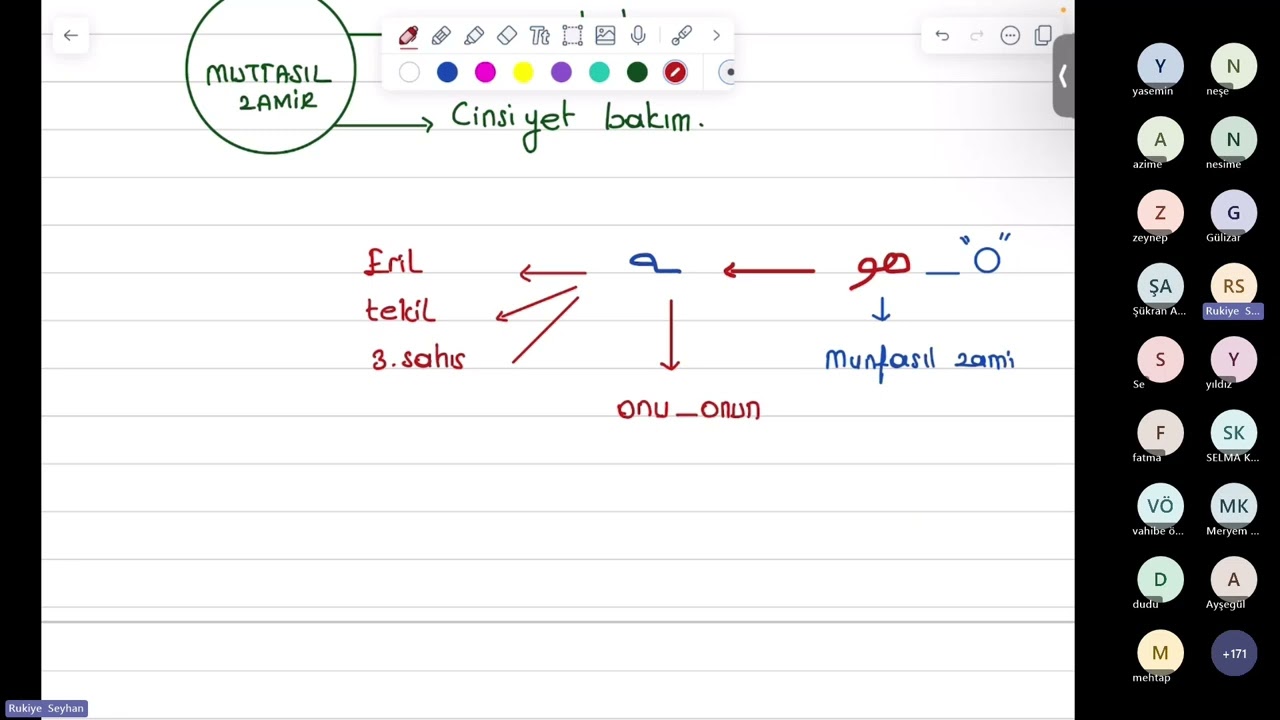 MUTTASIL
ZAMİR
Cinsiyet bakım.
Eril
tekil
3. sahıs
ه
هو _ "O"
Munfasıl zami
onu _ onun
Tt
Y
yasemin
N
neşe
A
azime
N
nesime
Z
zeynep
G
Gülizar
ŞA
Şükran A...
RS
Rukiye S...
S
Se
Y
yıldız
F
fatma
SK
SELMA K...
VÖ
vahibe ö...
MK
Meryem ...
D
dudu
A
Ayşegül
M
mehtap
+171
Rukiye Seyhan